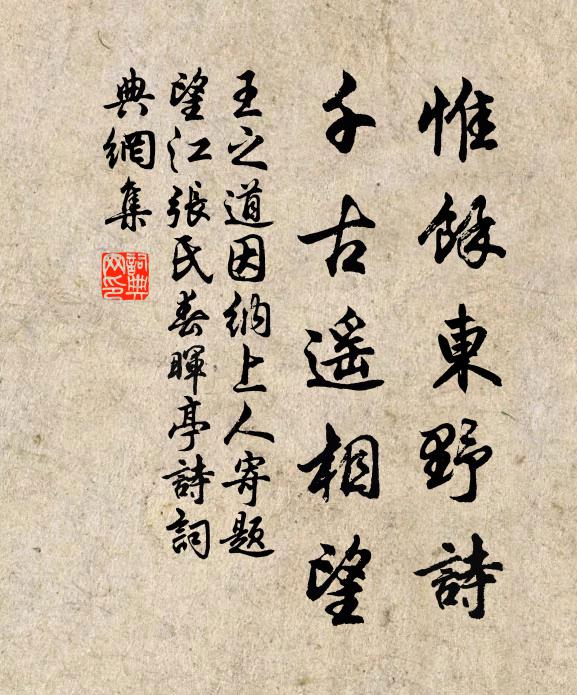 惟餘東野詩
千古遥相望
王之道因納上人寄題
望江張氏春暉亭詩詞
典網集
詞典
网印